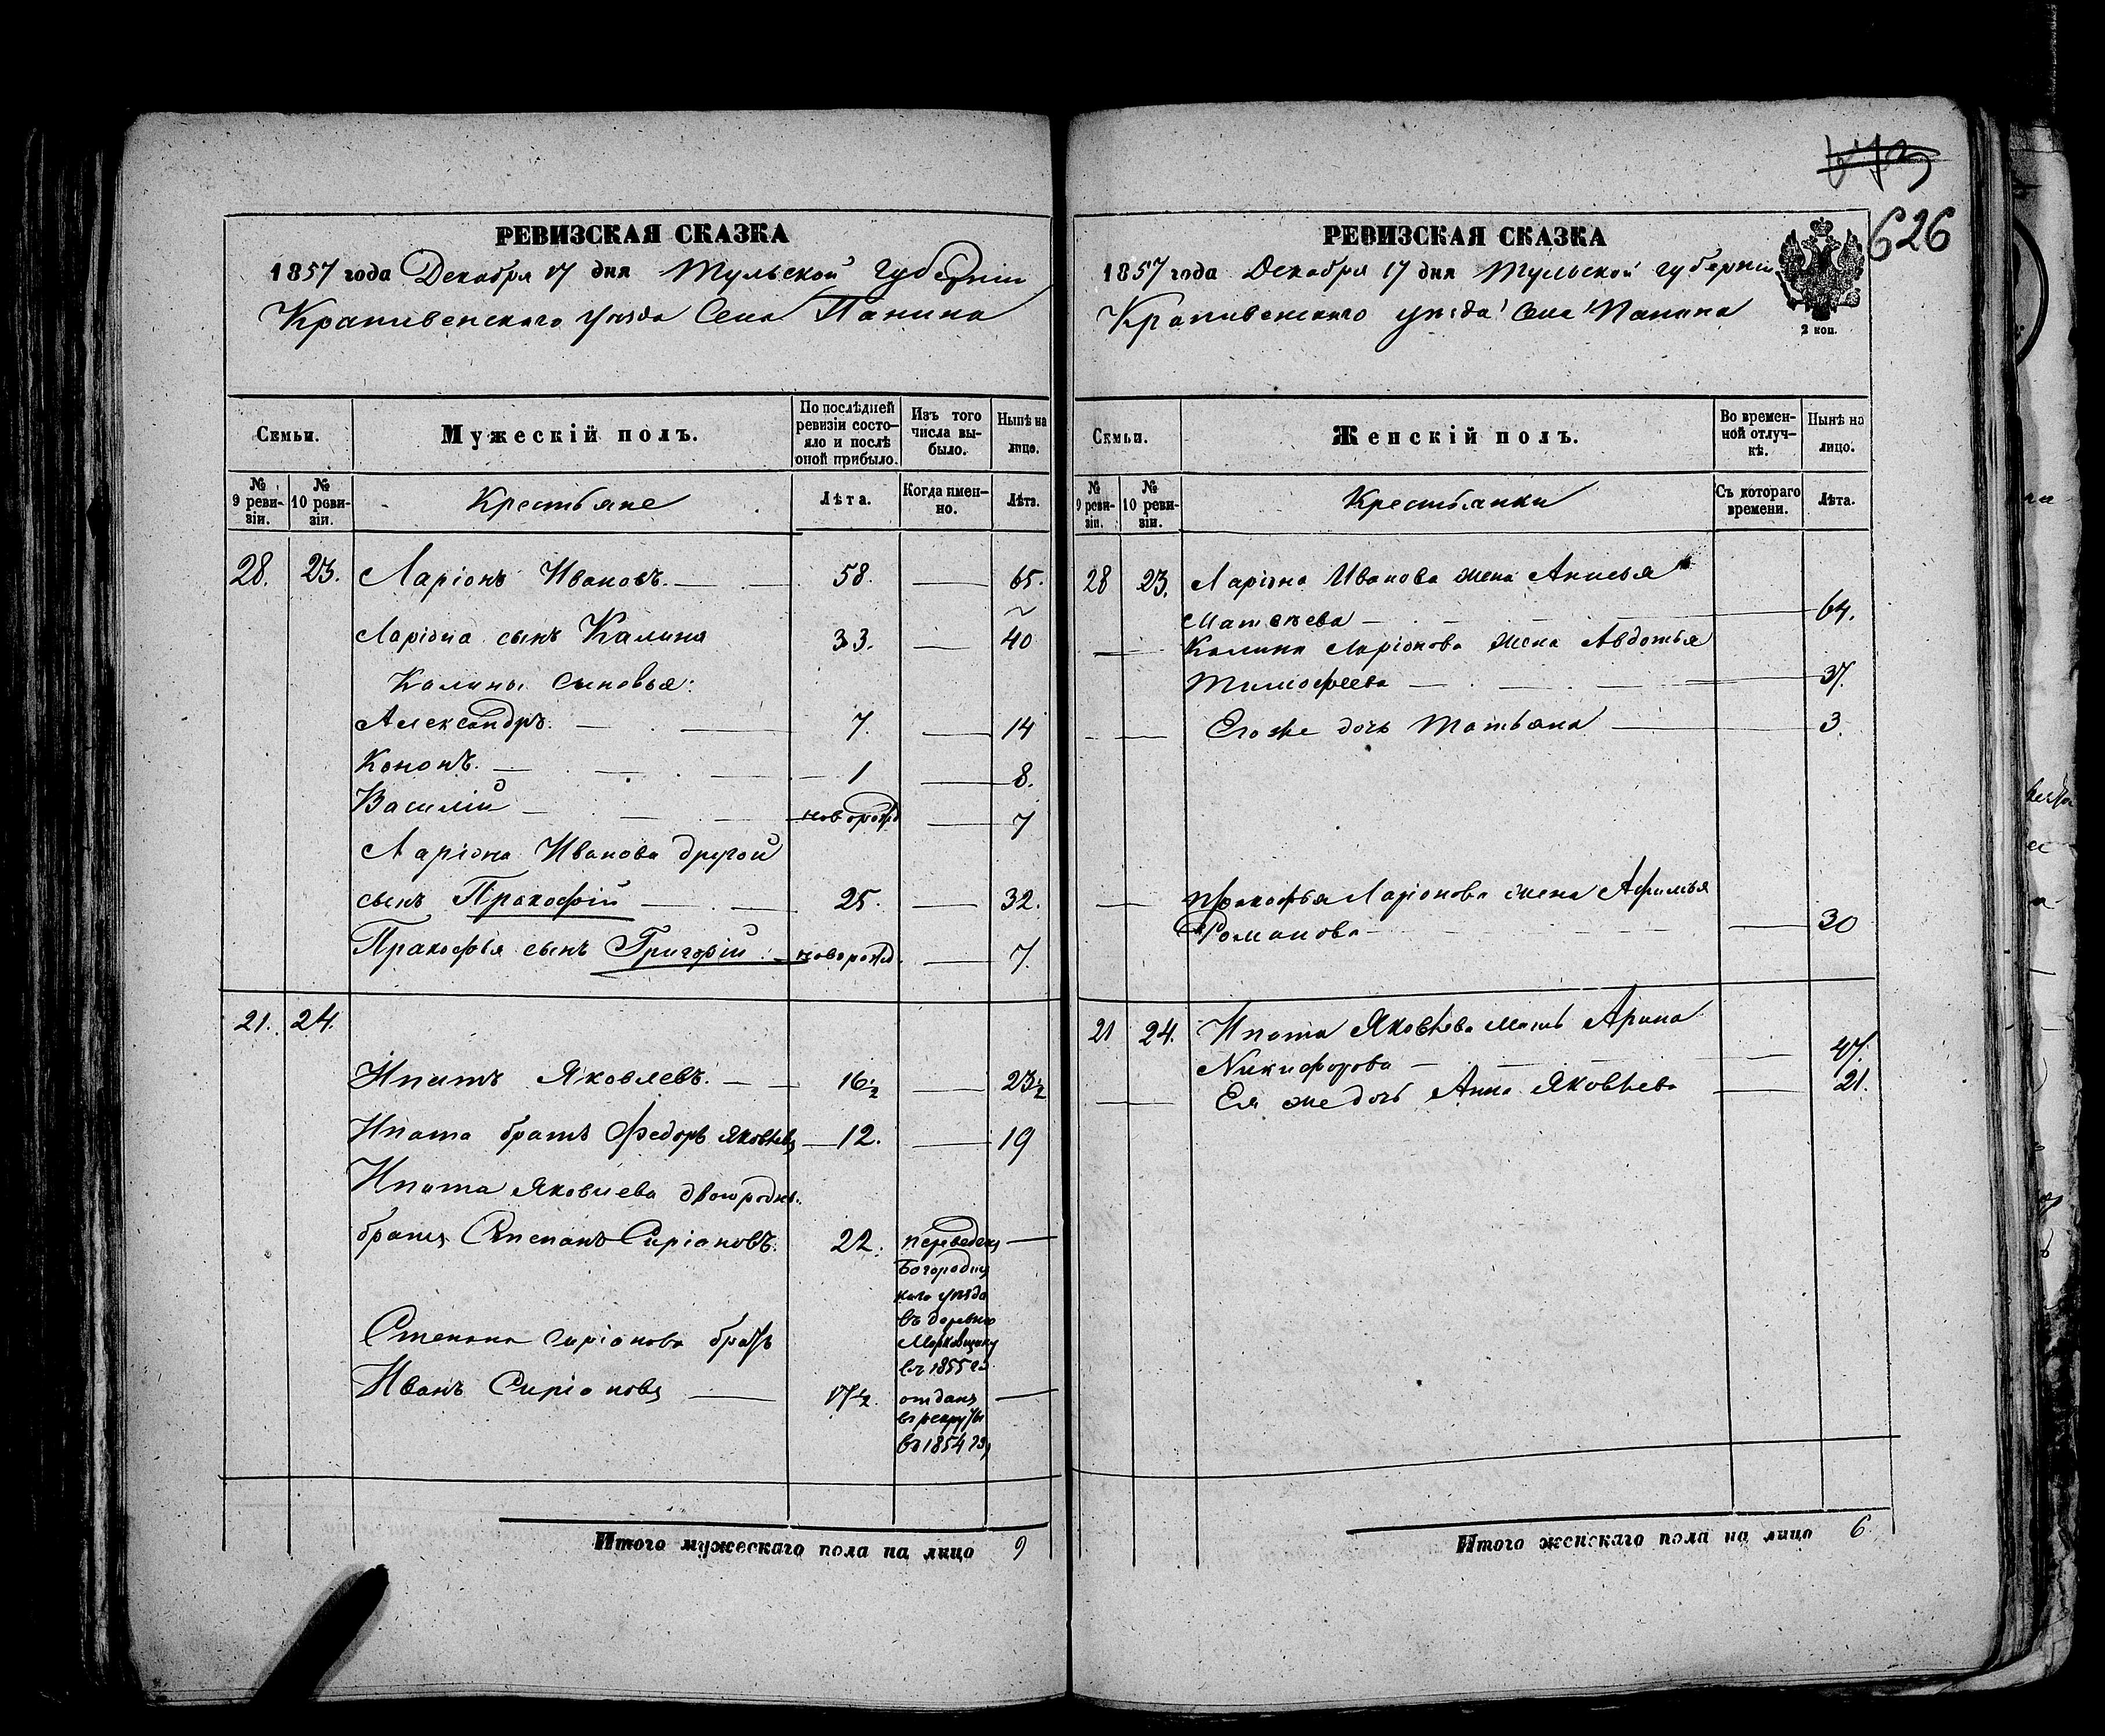 РЕВИЗСКАЯ СКАЗКА
1857 года Декабря 17 дня Тульской губерніи
Крапивенскаго уѣзда Села Панина
Семьи.
Мужескій полъ.
По послѣдней ревизіи состо-
яло и послѣ
оной прибыло.
Изъ того
числа вы-
было.
Нынѣ на
лицо.
№
9 реви-
зіи.
№
10 реви-
зіи.
Крестьяне
Лѣта.
Когда имен-
но.
Лѣта.
28. 23. Ларіонъ Ивановъ. 58. 65.
Ларіона сынъ Калина 33. 40
Калины сыновья:
Александръ. 7. 14
Кононъ. 1 8.
Василій новорожд 7
Ларіона Иванова другой
сынъ Прокофій 25. 32.
Прокофья сынъ Григорій новорожд. 7.
21. 24.
Ипатъ Яковлевъ. 16½ 23½
Ипата братъ Федоръ Яковлевъ 12. 19
Ипата Яковлева двоюродны.
братъ Степанъ Сиріоновъ. 22. переведенъ
Богородиц
каго уѣзда
въ деревню
въ 1855 го
Степана Сиріонова братъ
Иванъ Сиріоновъ 17½. отданъ
въ рекруты
въ 1854 го
Итого мужескаго пола на лицо 9
626
РЕВИЗСКАЯ СКАЗКА
1857 года Декабря 17 дня Тульской губерніи
Крапивенскаго уѣзда Села Панина
2 коп.
Семьи.
Женскій полъ.
Во времен-
ной отлуч-
кѣ.
Нынѣ на
лицо.
№
9 реви-
зіи.
№
10 реви-
зіи.
Крестьянки
Съ котораго
времени.
Лѣта.
28 23. Ларіона Иванова жена Анисья
Матвѣева 64.
Калины Ларіонова жена Авдотья
Тимофеева 37.
Его же дочь Татьяна 3.
Прокофья Ларіонова жена Афимья
Романова 30
21 24. Ипата Яковлева мать Арина
Никифорова 47.
Ея же дочь Анна Яковлева 21.
Итого женскаго пола на лицо 6